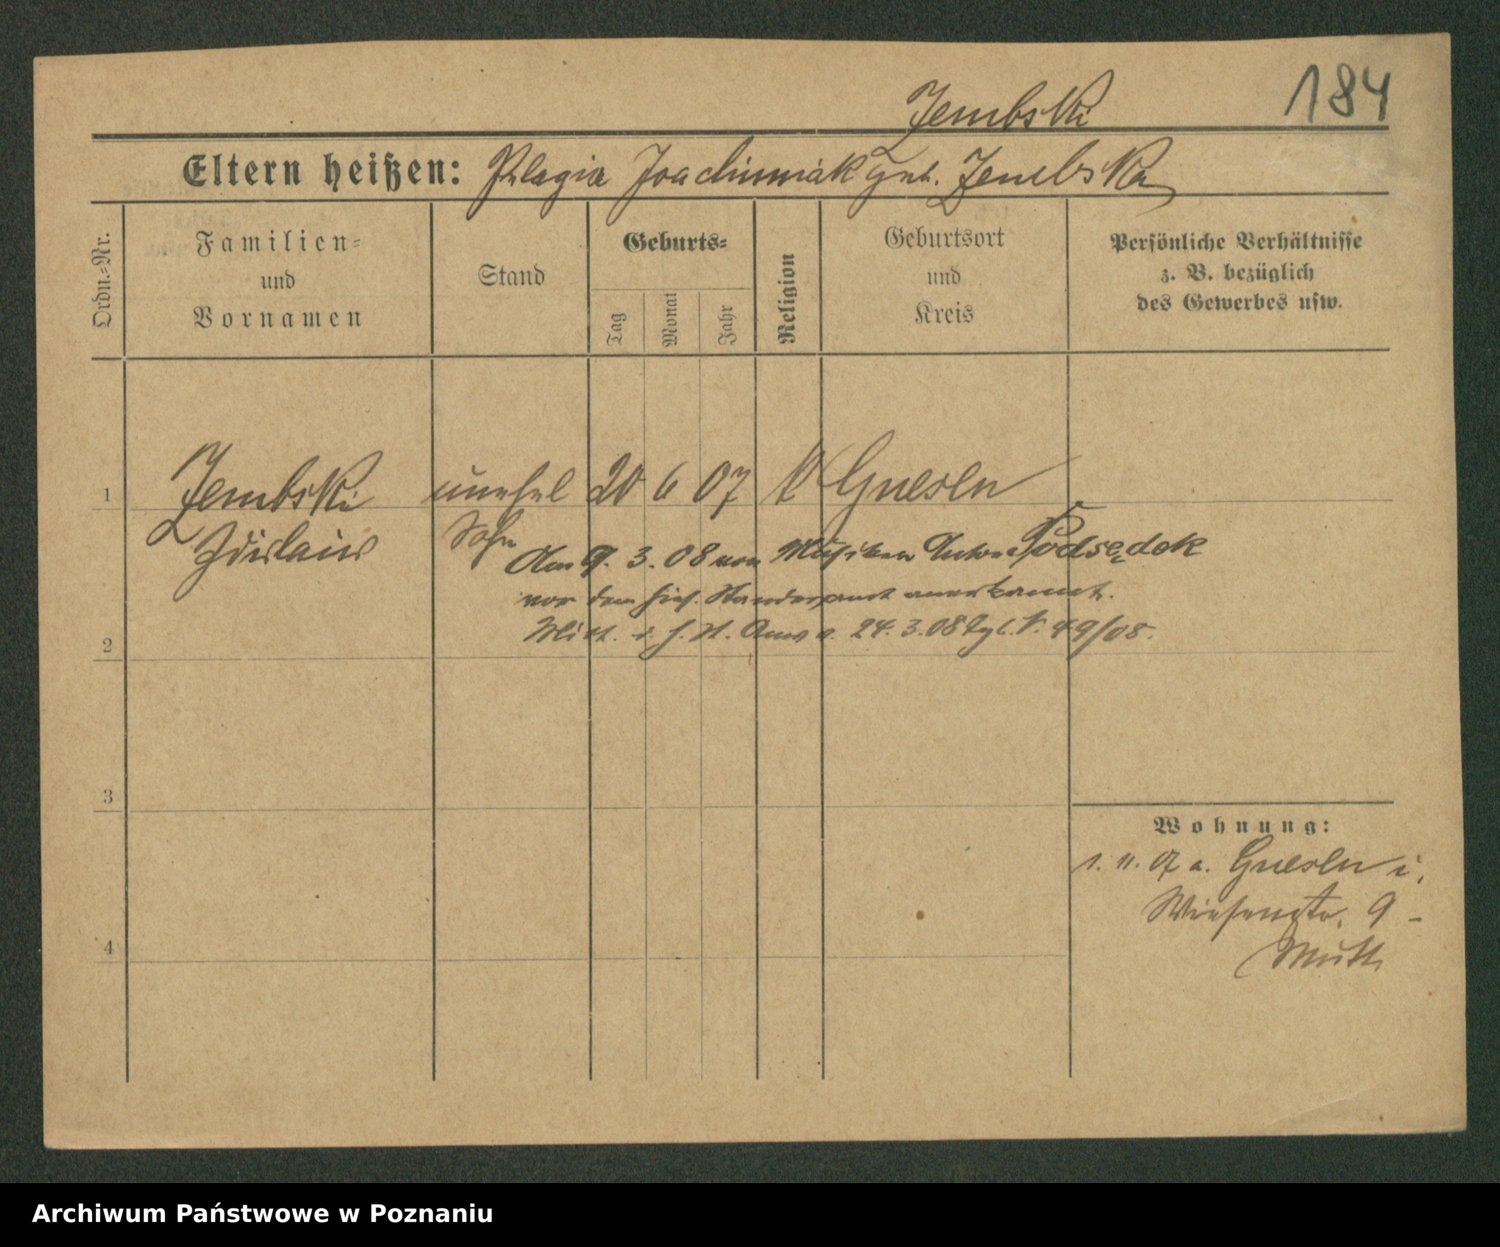 184
Zembski
Eltern heißen: Pelagia Joachimiak geb. Zembska
Ordn.-Nr.
Familien- und Vornamen
Stand
Geburts-
Tag
Monat
Jahr
Religion
Geburtsort und Kreis
Persönliche Verhältnisse
z. B. bezüglich
des Gewerbes usw.
1 Zembski unehel 20 6 07 k Gnesen
Zdislaus Sohn
Am 9. 3. 08 von Musiker Anton Podsędek
vor dem hies. Standesamt anerkannt.
2 Mitt. d. h. St. Amts v. 24. 3. 08 49/08.
3
Wohnung:
1. 11. 07 a. Gnesen i.
Wiesenstr. 9 -
4 Mutt.
Archiwum Państwowe w Poznaniu